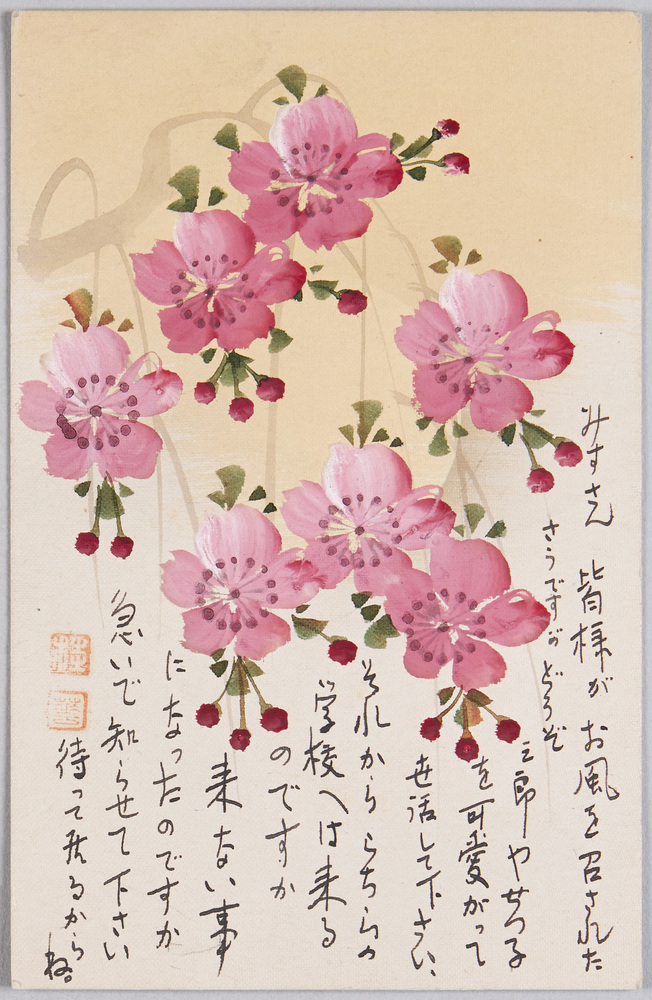 みすさん 皆様が お風を召された
さうですが どうぞ
三郎やせつ子
を可愛がって
世話して下さい、
それから こちらの
学校へは来る
のですか
来ない事
になったのですか
急いで 知らせて 下さい
待って居るから
ね。